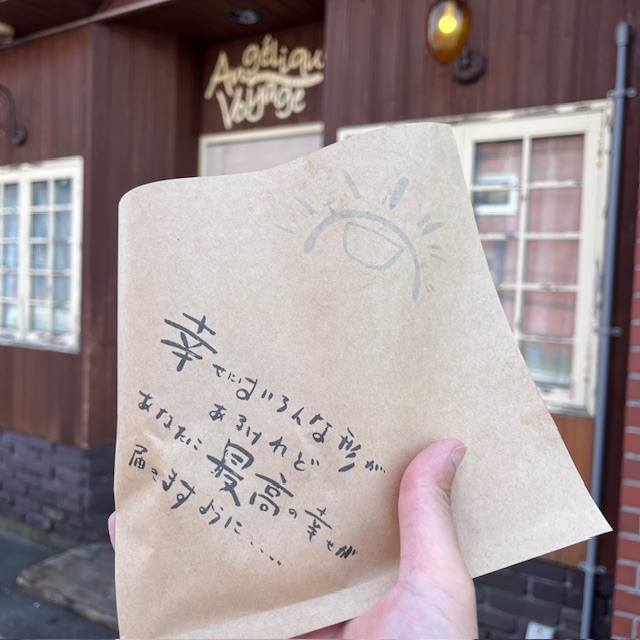 Angélique
Voyage
幸せにはいろんな形が
あるけれど
あなたに最高の幸せが
届きますように....